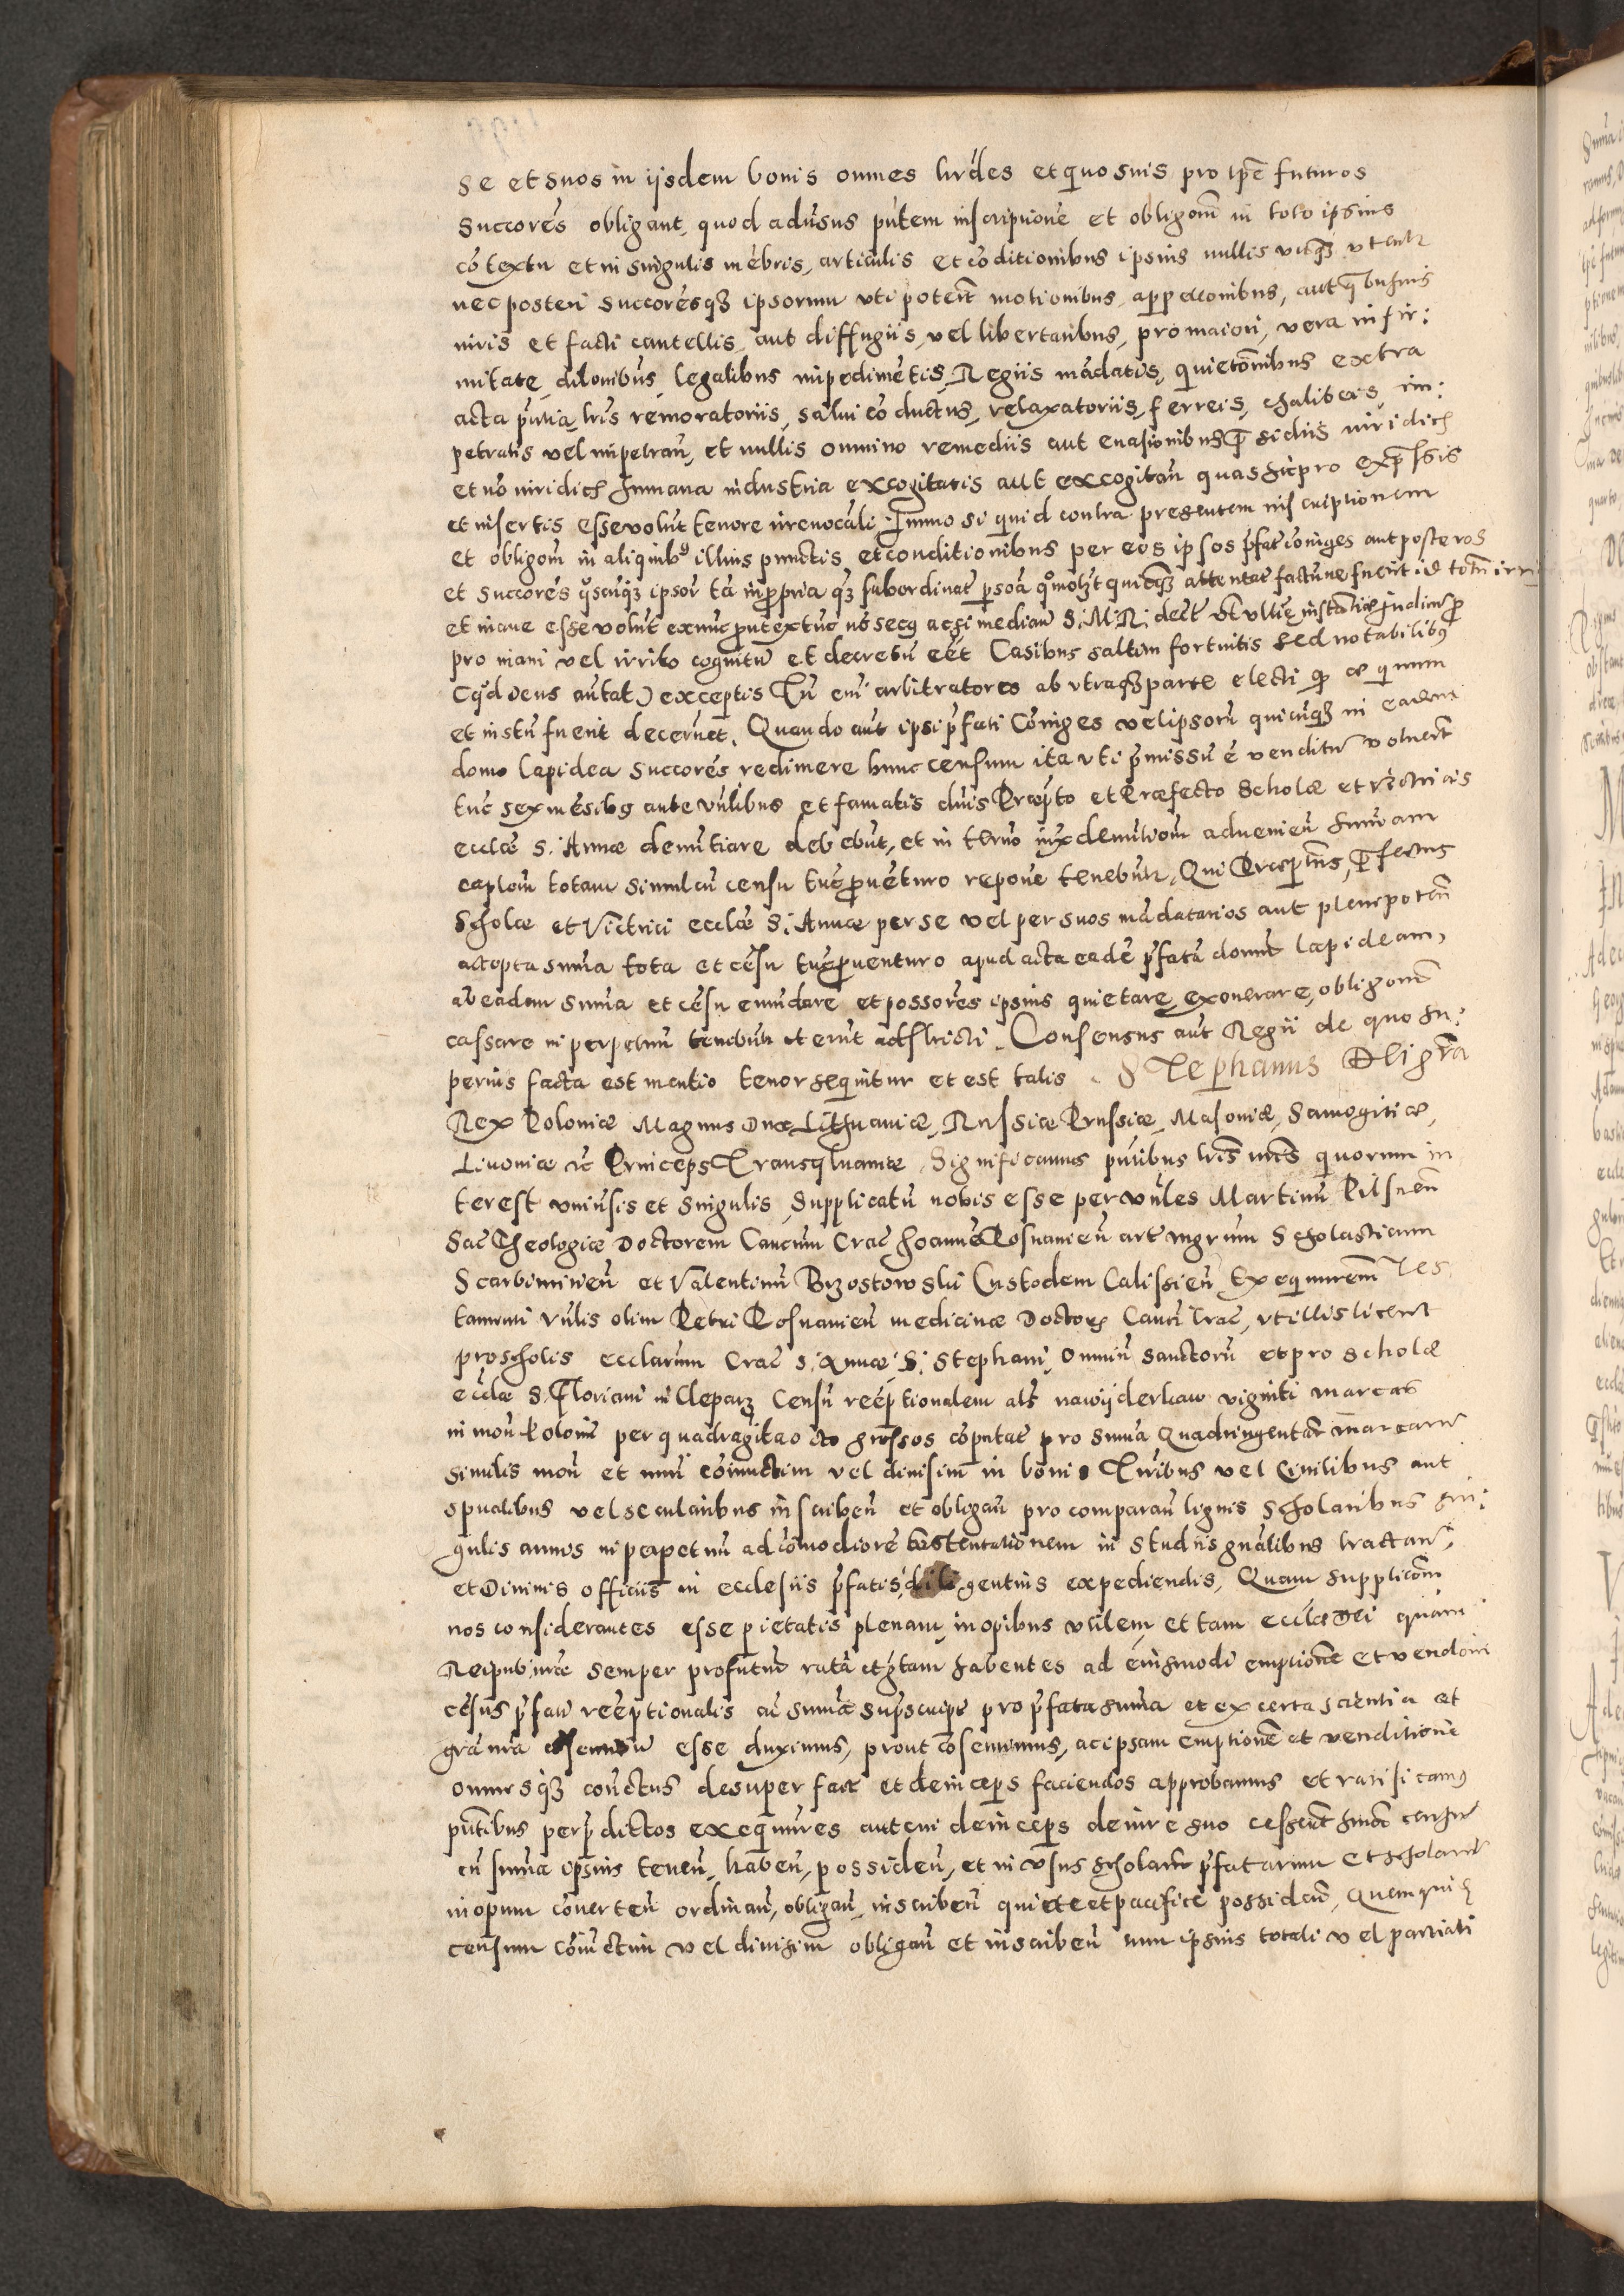 se et suos in ijsdem bonis omnes hrdes et quosuis pro tpe futuros
Succores obligant, quod aduersus pntem inscriptione et obligom in toto ipsius
cotextu et in singulis mebris, articulis et coditionibus ipsius nullis vnq3 vtent
nec posteri Succoresq3 ipsorum vti poterit motionibus appellonibus, aut qbusuis
iuris et facti cautellis, aut diffugiis, vel libertatibus, pro maiori, vera infir:
mitate, dilonibus, legalibus impedimetis, Regiis madatis, quietonibus extra
acta pntia, lris remoratoriis, salui coductus, relaxatoriis, ferreis, chalibeis, im:
petratis vel impetran, et nullis omnino remediis aut euasionibus psidiis iuridicis
et no iuridicis humana industria excogitatis aut excogitan quas hic pro expssis
et insertis esse volut tenore irreuocali. Immo si quid contra presentem inscriptionem
et obligom in aliquib9 illius punctis et conditionibus per eos ipsos pfat coniuges aut posteros
et Succores qoscuq3 ipsor ta in propria q3 subordinat psoa qomolt quicq3 attentat factumue fuerit id totu irri
et inane esse volut exnuc put extuc no secq acsi median S. M. R. decrt vt ullis instatiae iudiciu p
pro inani vel irrito cognitu et decretu eet Casibus saltim fortuitis sed notabilibus
(qd deus autat) exceptis Tn em arbitratores ab vtraq3 parte electi qp aequum
et iustu fuerit decernet. Quando aut ipsi pfati Coniuges vel ipsoru quicuq3 in eadem
domo lapidea Succores redimere hunc censum ita vti pmissu e venditu voluerit
tuc sex mesibus ante vnlibus et famatis dnis Praepto et Praefecto Scholae et victricis
ecclae S. Annae denutiare debebut, et in terno iux denutiom aduenien summam
caplom totam simul cu censu tuc puenturo repone tenebutr, Qui Praepositus, Pfectus
Scholae et Victrici ecclae S. Annae per se vel per suos madatarios aut plenipoten
accepta suma tota et cesu tuc puenturo apud acta eade pfata domu lapideam,
ab eadem suma et cesu emundare et possores ipsius quietare, exonerare, obligom
cassare in perpetuu tenebutr et erut adstricti. Consensus aut Regii de quo su:
perius facta est mentio tenor sequitur et est talis. Stephanus D[ei] gra
Rex Poloniae Magnus Dux Lithuaniae, Russiae Prussiae, Masouiae, Samogitiae,
Liuoniae &c Princeps Transyluaniae, Significamus pntibus lris nris quorum in
terest vniuersis et singulis, Supplicatu nobis esse per vnles Martinu Pilsnen
Sac Theologiae Doctorem Canonicu Crac Joanne Posnanien art mgrum Scholasticum
Scarbimirien et Valentinu Brzostowski Custodem Calissien Exequutorem Tes
tamenti vnlis olim Petri Posnanien medicinae Doctor Canci Crac, vt illis liceret
pro scholis ecclarum Crac S. Annae, S. Stephani, Omniu Sanctoru et pro schola
ecclae S. Floriani in Clepar3 Censu reeptionalem als nawyderkaw viginti marcas
in mon Poloni per quadragita octo grossos coputat pro suma Quadringentar marcaru
similis mon et nuri coniuctim vel diuisim in bonis Tnribus vel Ciuilibus aut
spualibus vel secularibus inscriben et obligan pro comparan lignis Scholaribus sin:
gulis annis in perpetuu ad comodiore sustentationem in Studiis gnalibus tractan:
et Diuinis officiis in ecclesiis pfatis diligentius expediendis, Quam supplicom
nos considerantes esse pietatis plenam, inopibus vtilem, et tam ecclae Dei quam
Reipub nrae semper profutur rata et gtam habentes ad eiusmodi emptione et vendom
cesus pfati reeptionalis ac suma suprscript pro pfata suma et ex certa scientia et
gra nra cosentiendu esse duximus, prout cosentimus, ac ipsam emptione et venditione
omnesq3 cotractus desuper fact et deinceps faciendos approbamus et ratificamus
putibus perpdictos exequutores autem deinceps de iure suo cesserit huac censu
cu suma ipsius tenen, haben, possiden, et in vsus scholaru pfatarum et scholaru
inopum conuerten ordinan, obligan, inscriben quiete et pacifice possiden, Quemquide
censum coniuctim vel diuisim obligan et inscriben cum ipsius totali vel partiali